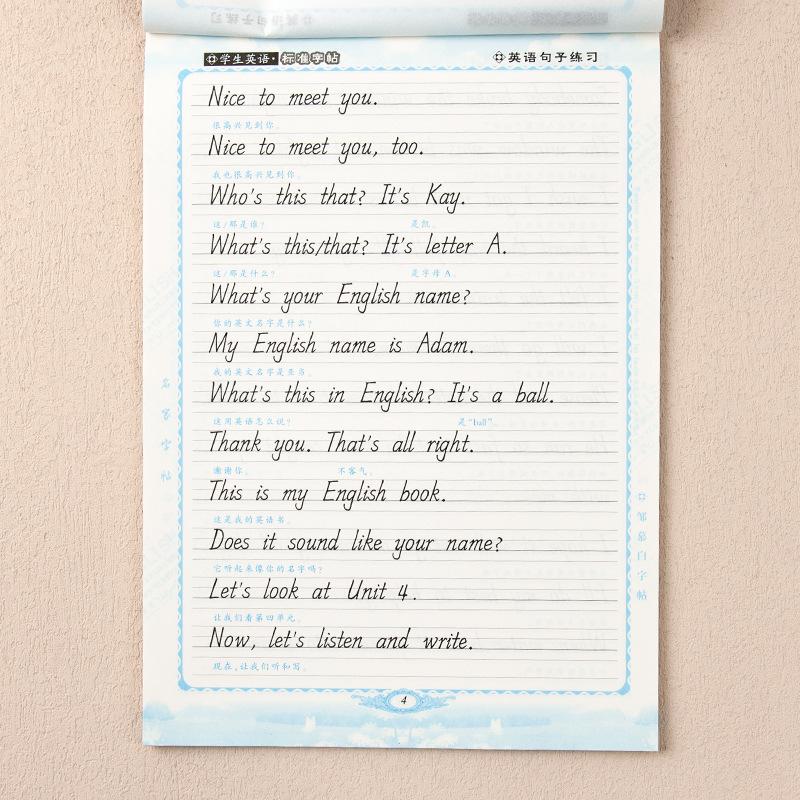 学生英语·标准字帖 英语句子练习
Nice to meet you.
很高兴见到你。
Nice to meet you, too.
我也很高兴见到你。
Who's this that? It's Kay.
这/那是谁? 是凯。
What's this/that? It's letter A.
这/那是什么? 是字母 A。
What's your English name?
你的英文名字是什么?
My English name is Adam.
我的英文名字是亚当。
What's this in English? It's a ball.
这用英语怎么说? 是“ball”。
Thank you. That's all right.
谢谢你。 不客气。
This is my English book.
这是我的英语书。
Does it sound like your name?
它听起来像你的名字吗?
Let's look at Unit 4.
让我们看第四单元。
Now, let's listen and write.
现在,让我们听和写。
4